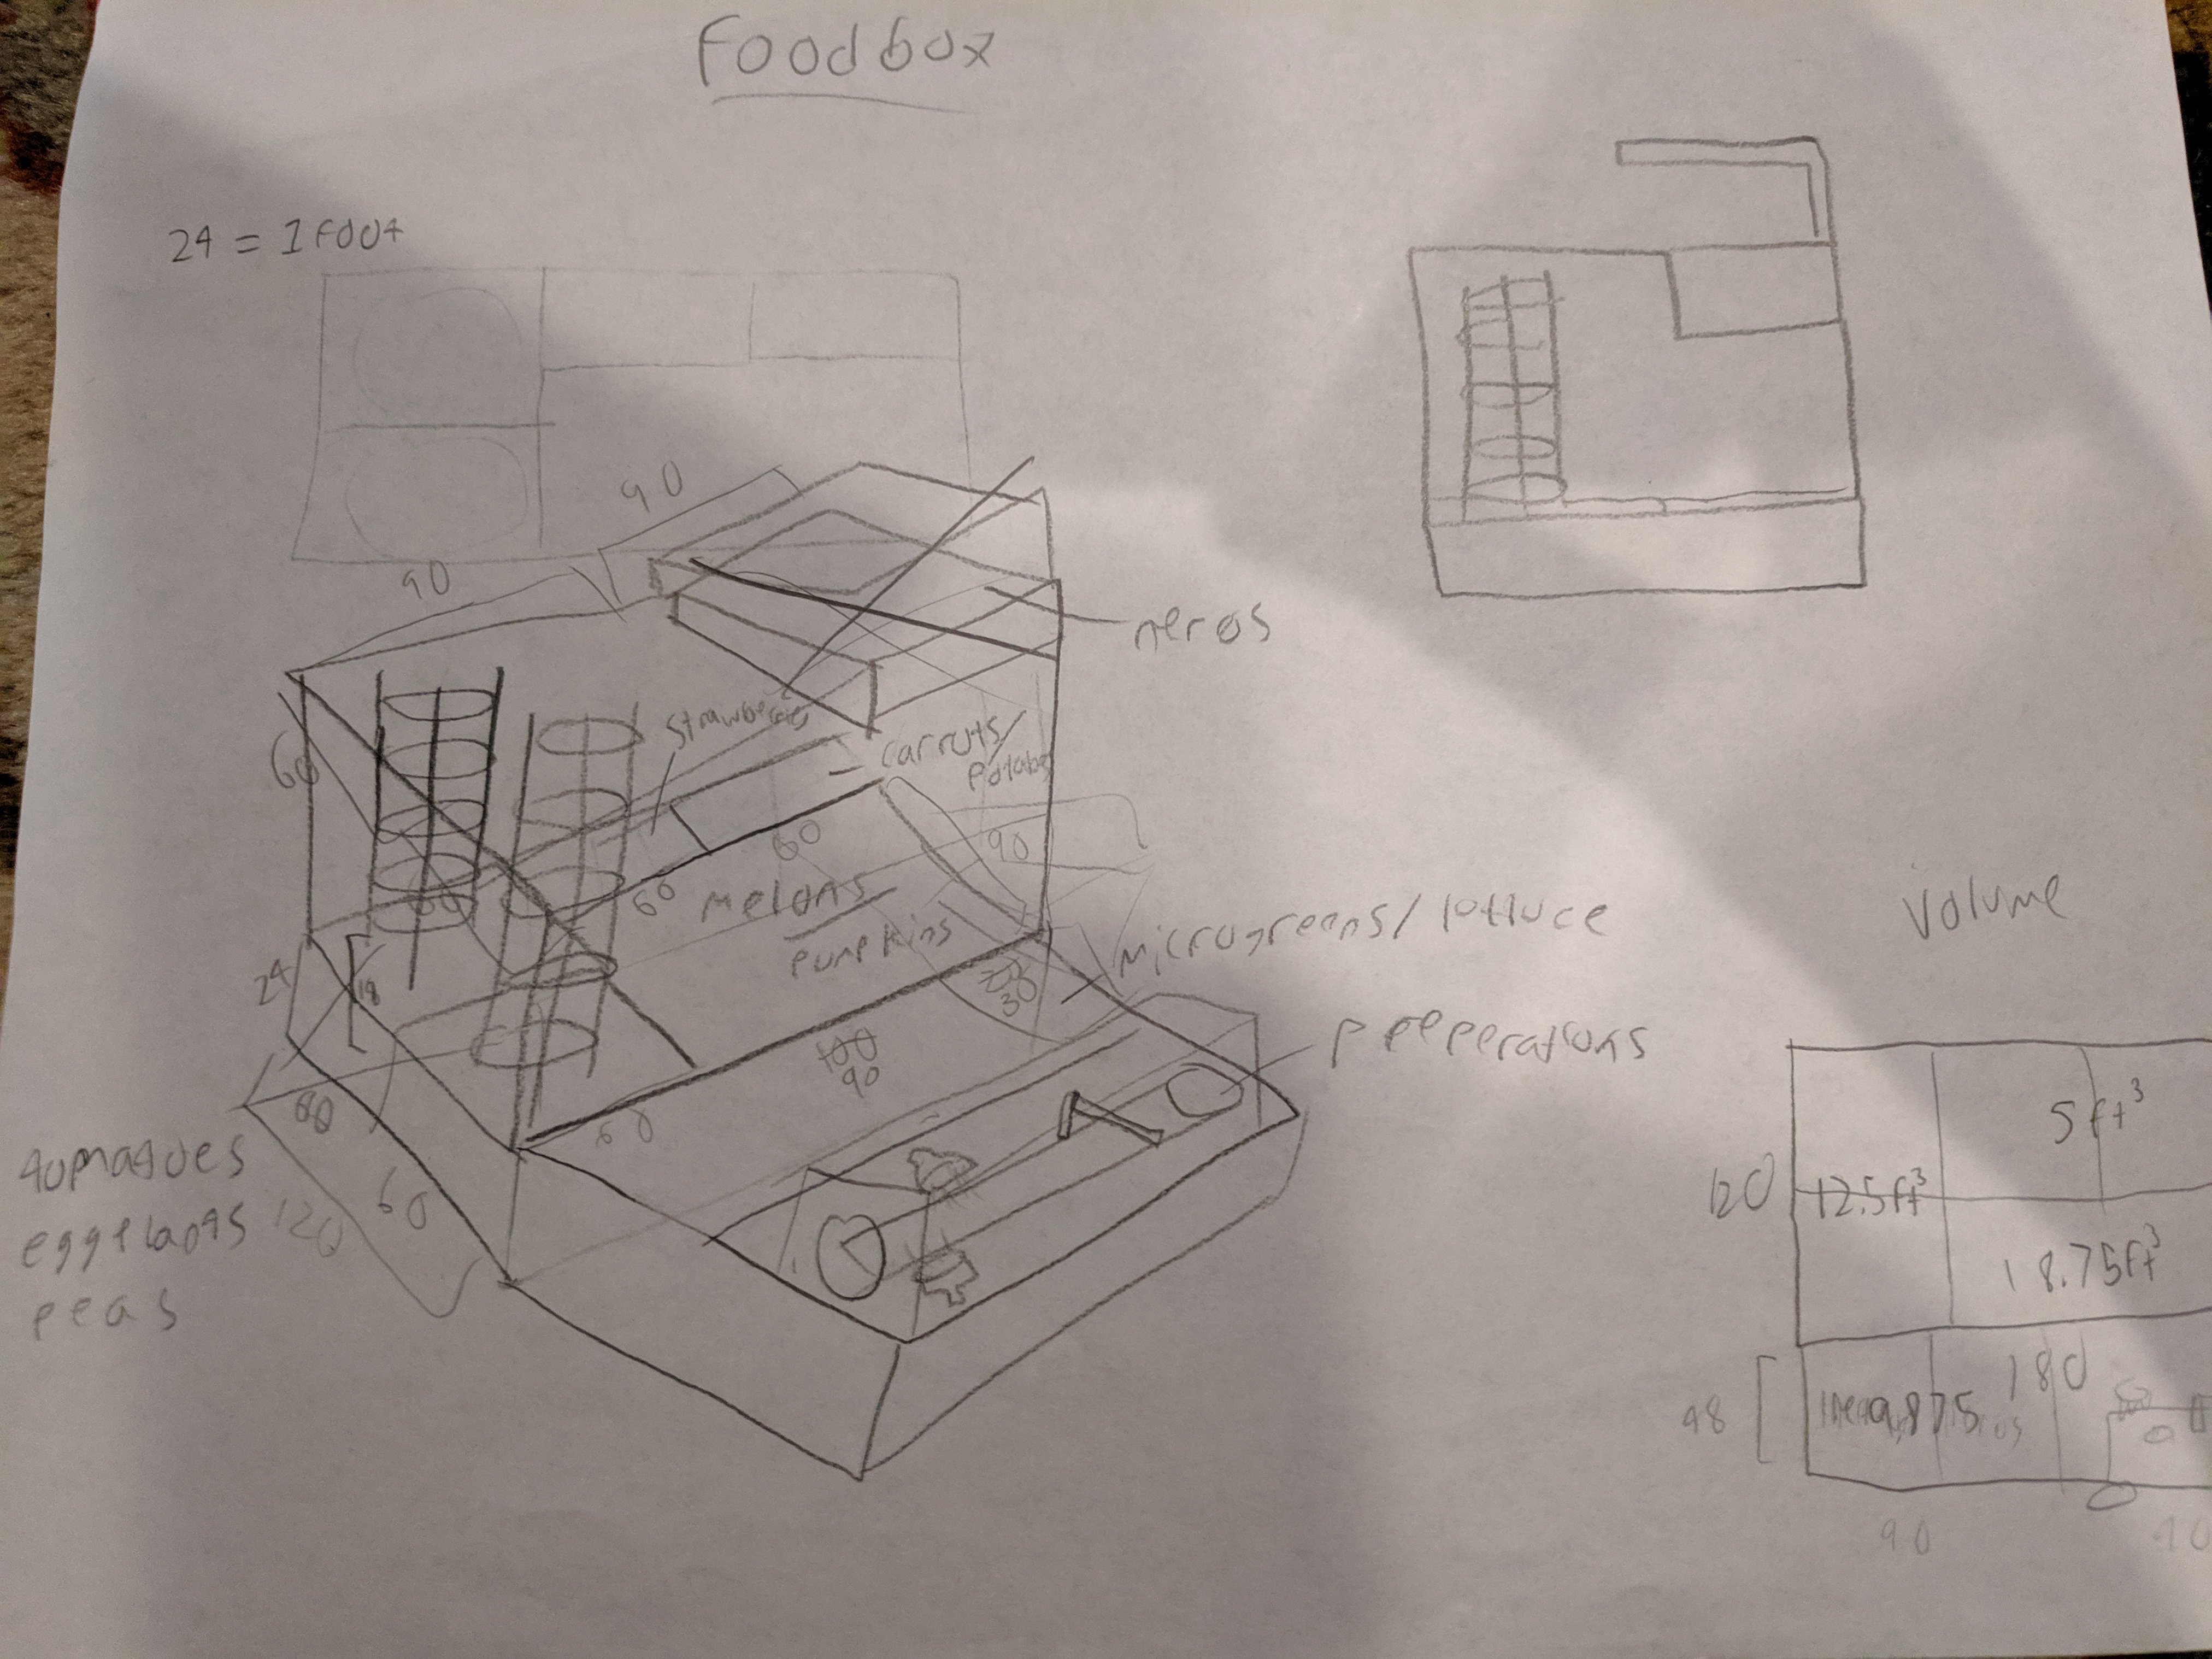 Foodbox
24 = 1 foot
90
90
neros
60
strawberries
carrots/
potatos
60
60
90
melons
pumpkins
microgreens/lottuce
24
18
30
100
90
60
preperations
60
120
eggplants
peas
volume
5ft³
120
12.5ft³
18.75ft³
180
48
9.875
90